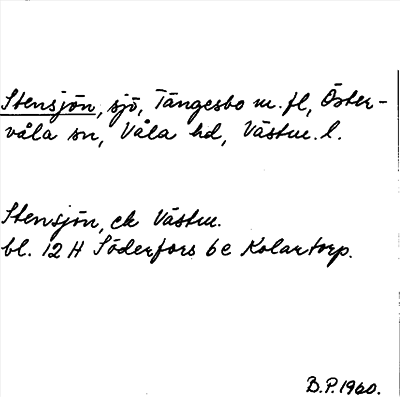 Stensjön, sjö, Tängesbo m. fl, Öster-
våla sn, Våla hd, Västm. l.
Stensjön, ek Västm.
bl. 12 H Söderfors 6e Kolartorp.
B.P. 1960.